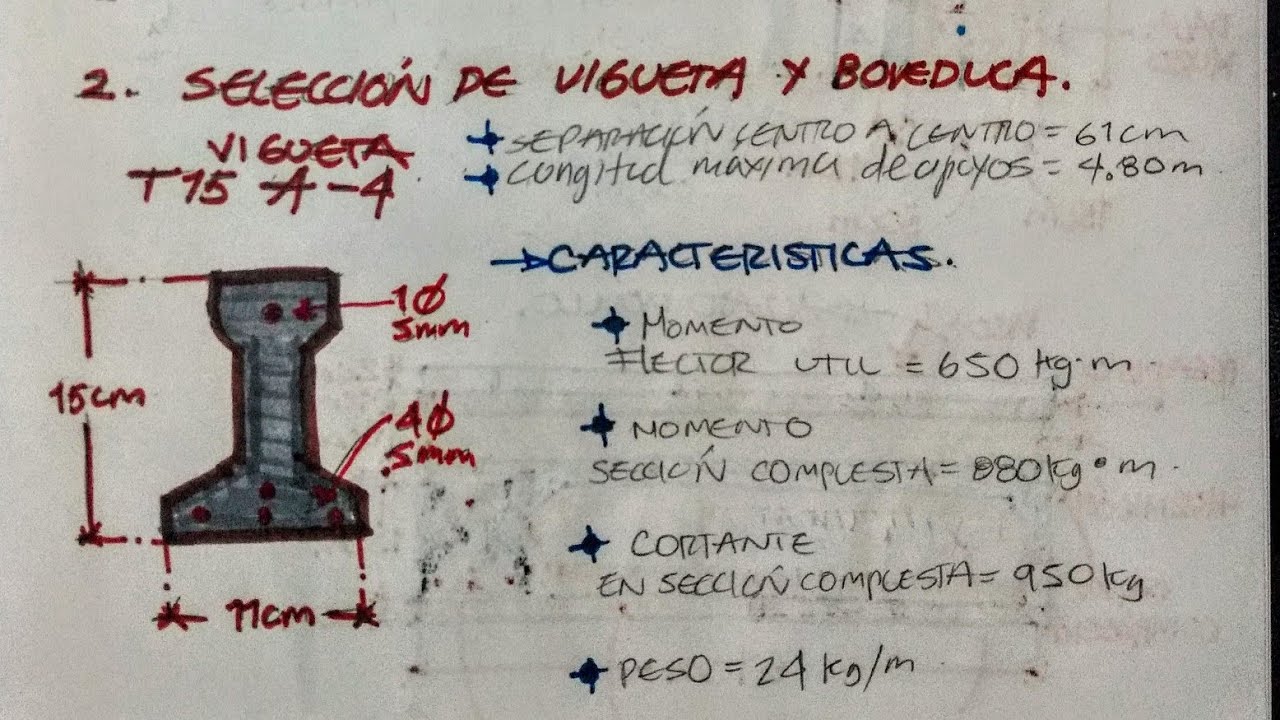 2. SELECCIÓN DE VIGUETA Y BOVEDILLA.
VIGUETA
T15 A-4
SEPARACIÓN CENTRO A CENTRO = 61cm
Longitud máxima de apoyos = 4.80m.
CARACTERISTICAS.
1Ø
5mm
15cm
4Ø
5mm
11cm
MOMENTO
FLECTOR UTIL = 650 kg·m.
MOMENTO
SECCIÓN COMPUESTA = 880kg·m.
CORTANTE
EN SECCIÓN COMPUESTA = 950kg
PESO = 24 kg/m